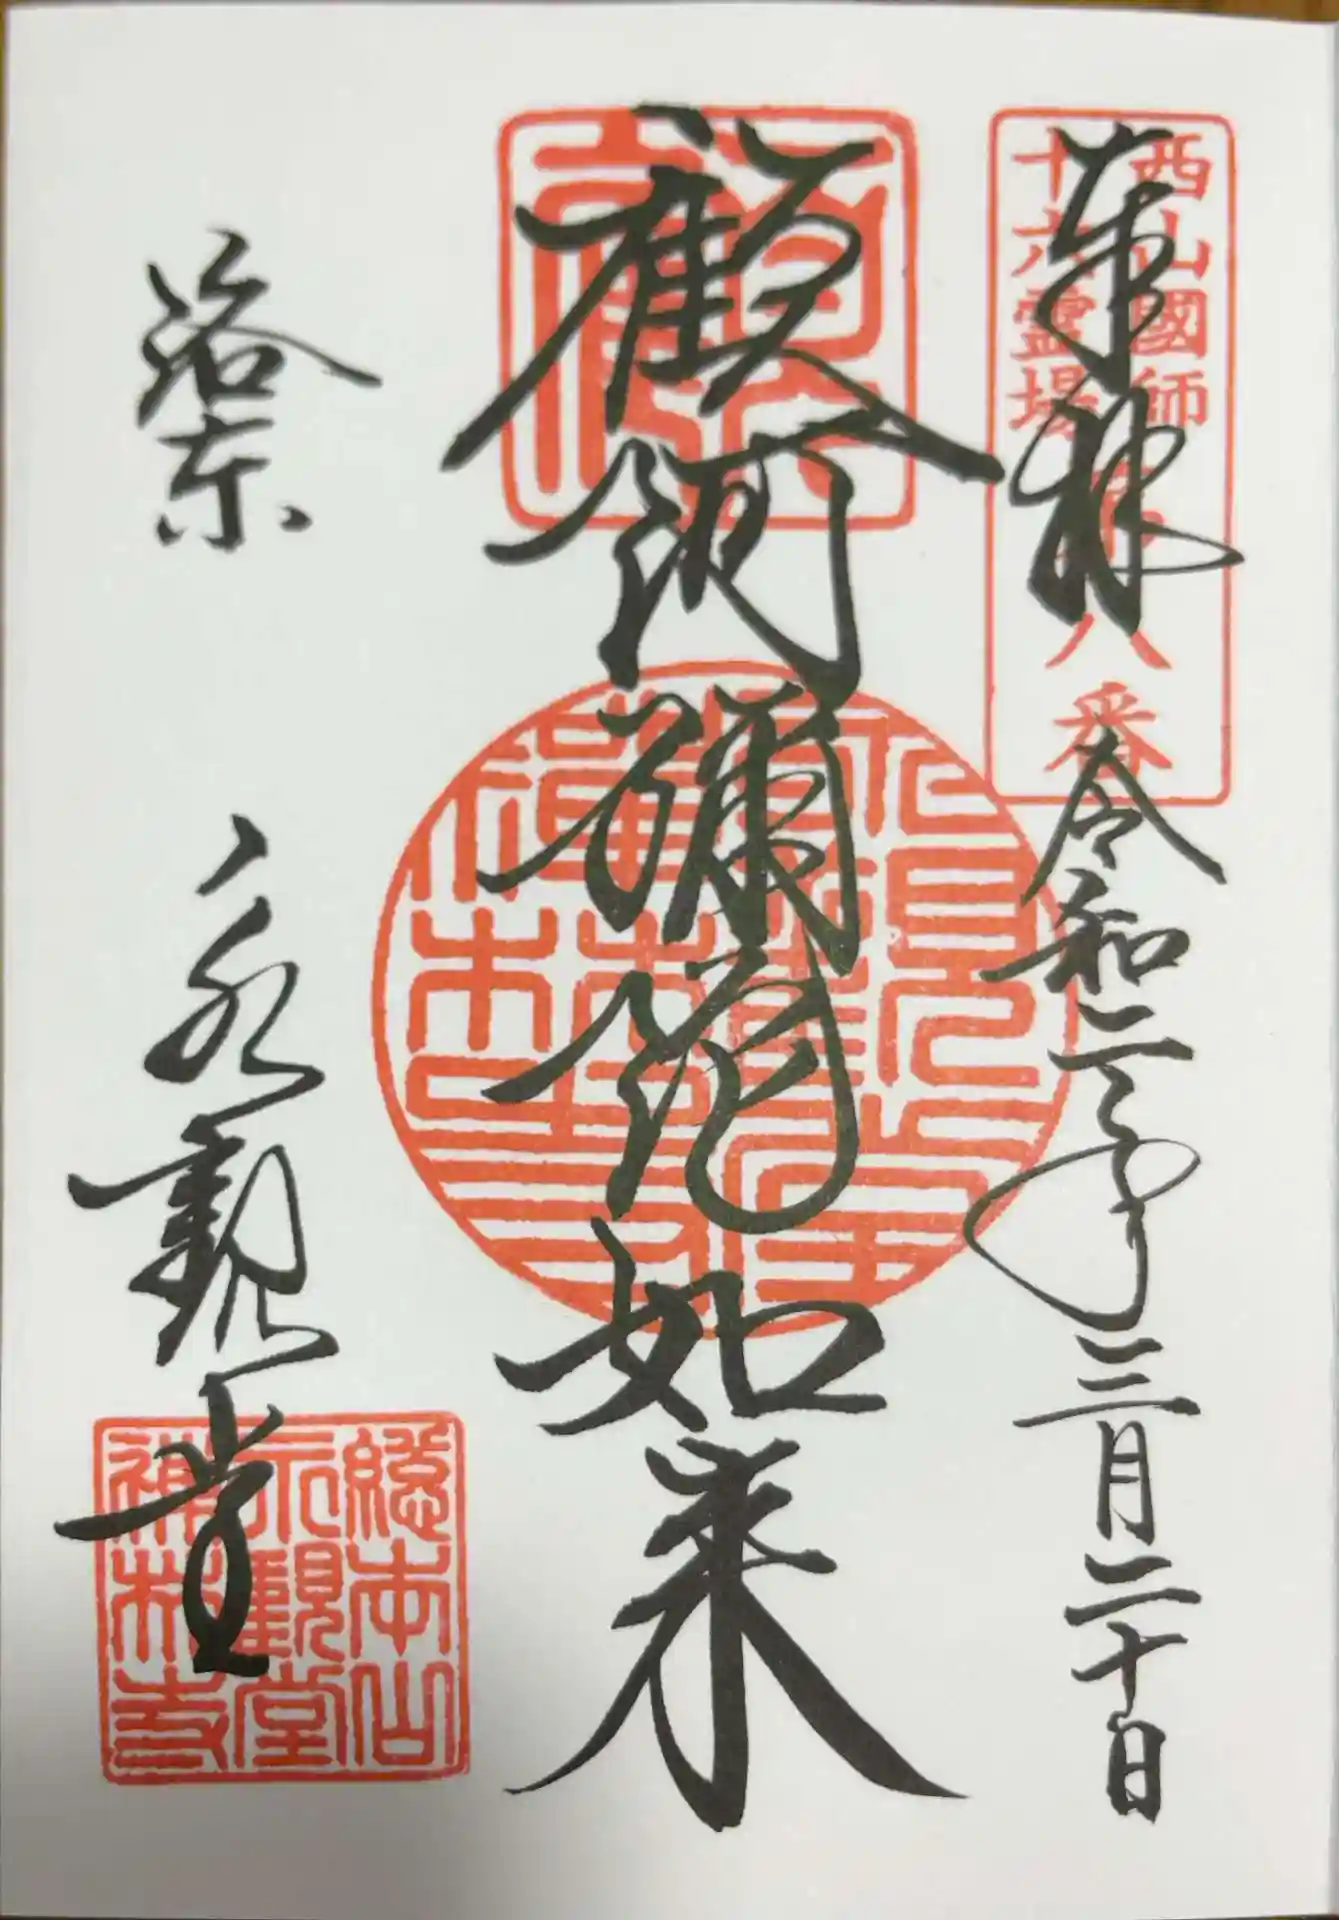 奉拝
令和二年三月二十日
西山國師
十六霊場
第八番
顧阿彌陀如来
洛東
永觀堂
總本山
永觀堂
禅林寺